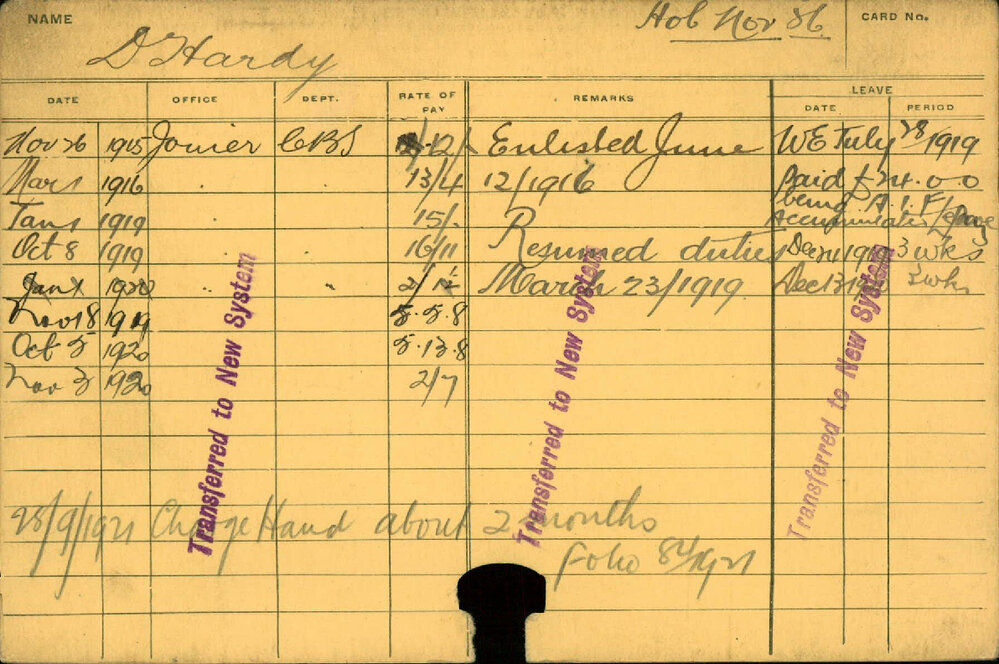 NAME
D Hardy
Hob Nov 86
CARD No.
DATE OFFICE DEPT. RATE OF PAY REMARKS LEAVE
DATE PERIOD
Nov 26 1915 Joiner CBS 12/- Enlisted June WE July 28 1919
Mar 1 1916 " " 13/4 12/1916 Paid £ 24.0.0
being A.I.F.
Jan 1 1919 15/- Accumulated leave
Oct 8 1919 16/11 Resumed duties Dec 21 1919 3 wks
Jan 1 1920 " " 2/ March 23/1919 Dec 13 1920 3 wks
Nov 18 1919 5.5.8
Oct 5 1920 5.13.8
Nov 3 1920 2/7
Transferred to New System
Transferred to New System
Transferred to New System
28/9/1921 Charge Hand about 2 months
folio 84